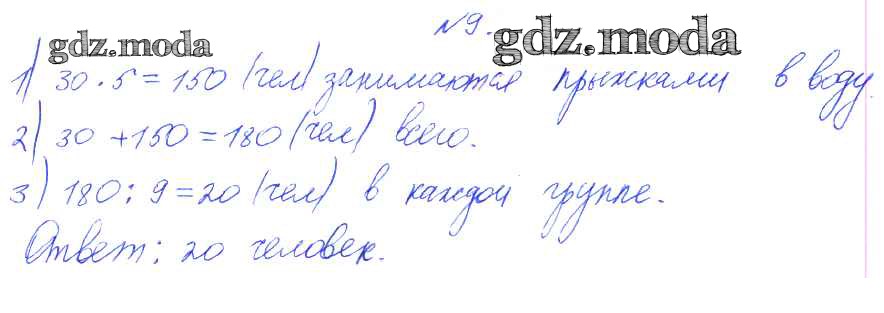 №9.
gdz.moda gdz.moda
1) 30 · 5 = 150 (чел) занимаются прыжками в воду.
2) 30 + 150 = 180 (чел) всего.
3) 180 : 9 = 20 (чел) в каждой группе.
Ответ: 20 человек.